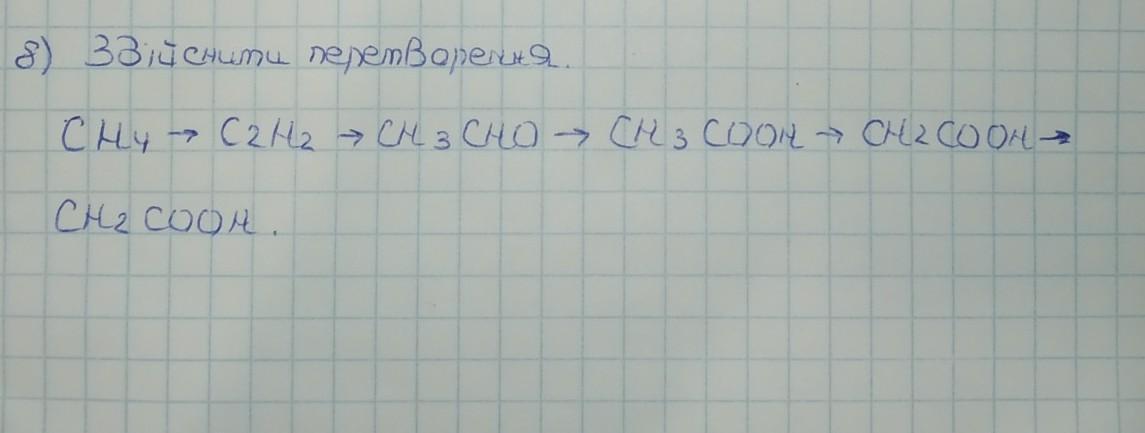 8) Здійснити перетворення.
CH4 → C2H2 → CH3CHO → CH3COOH → CH2COOH →
CH2COOH.